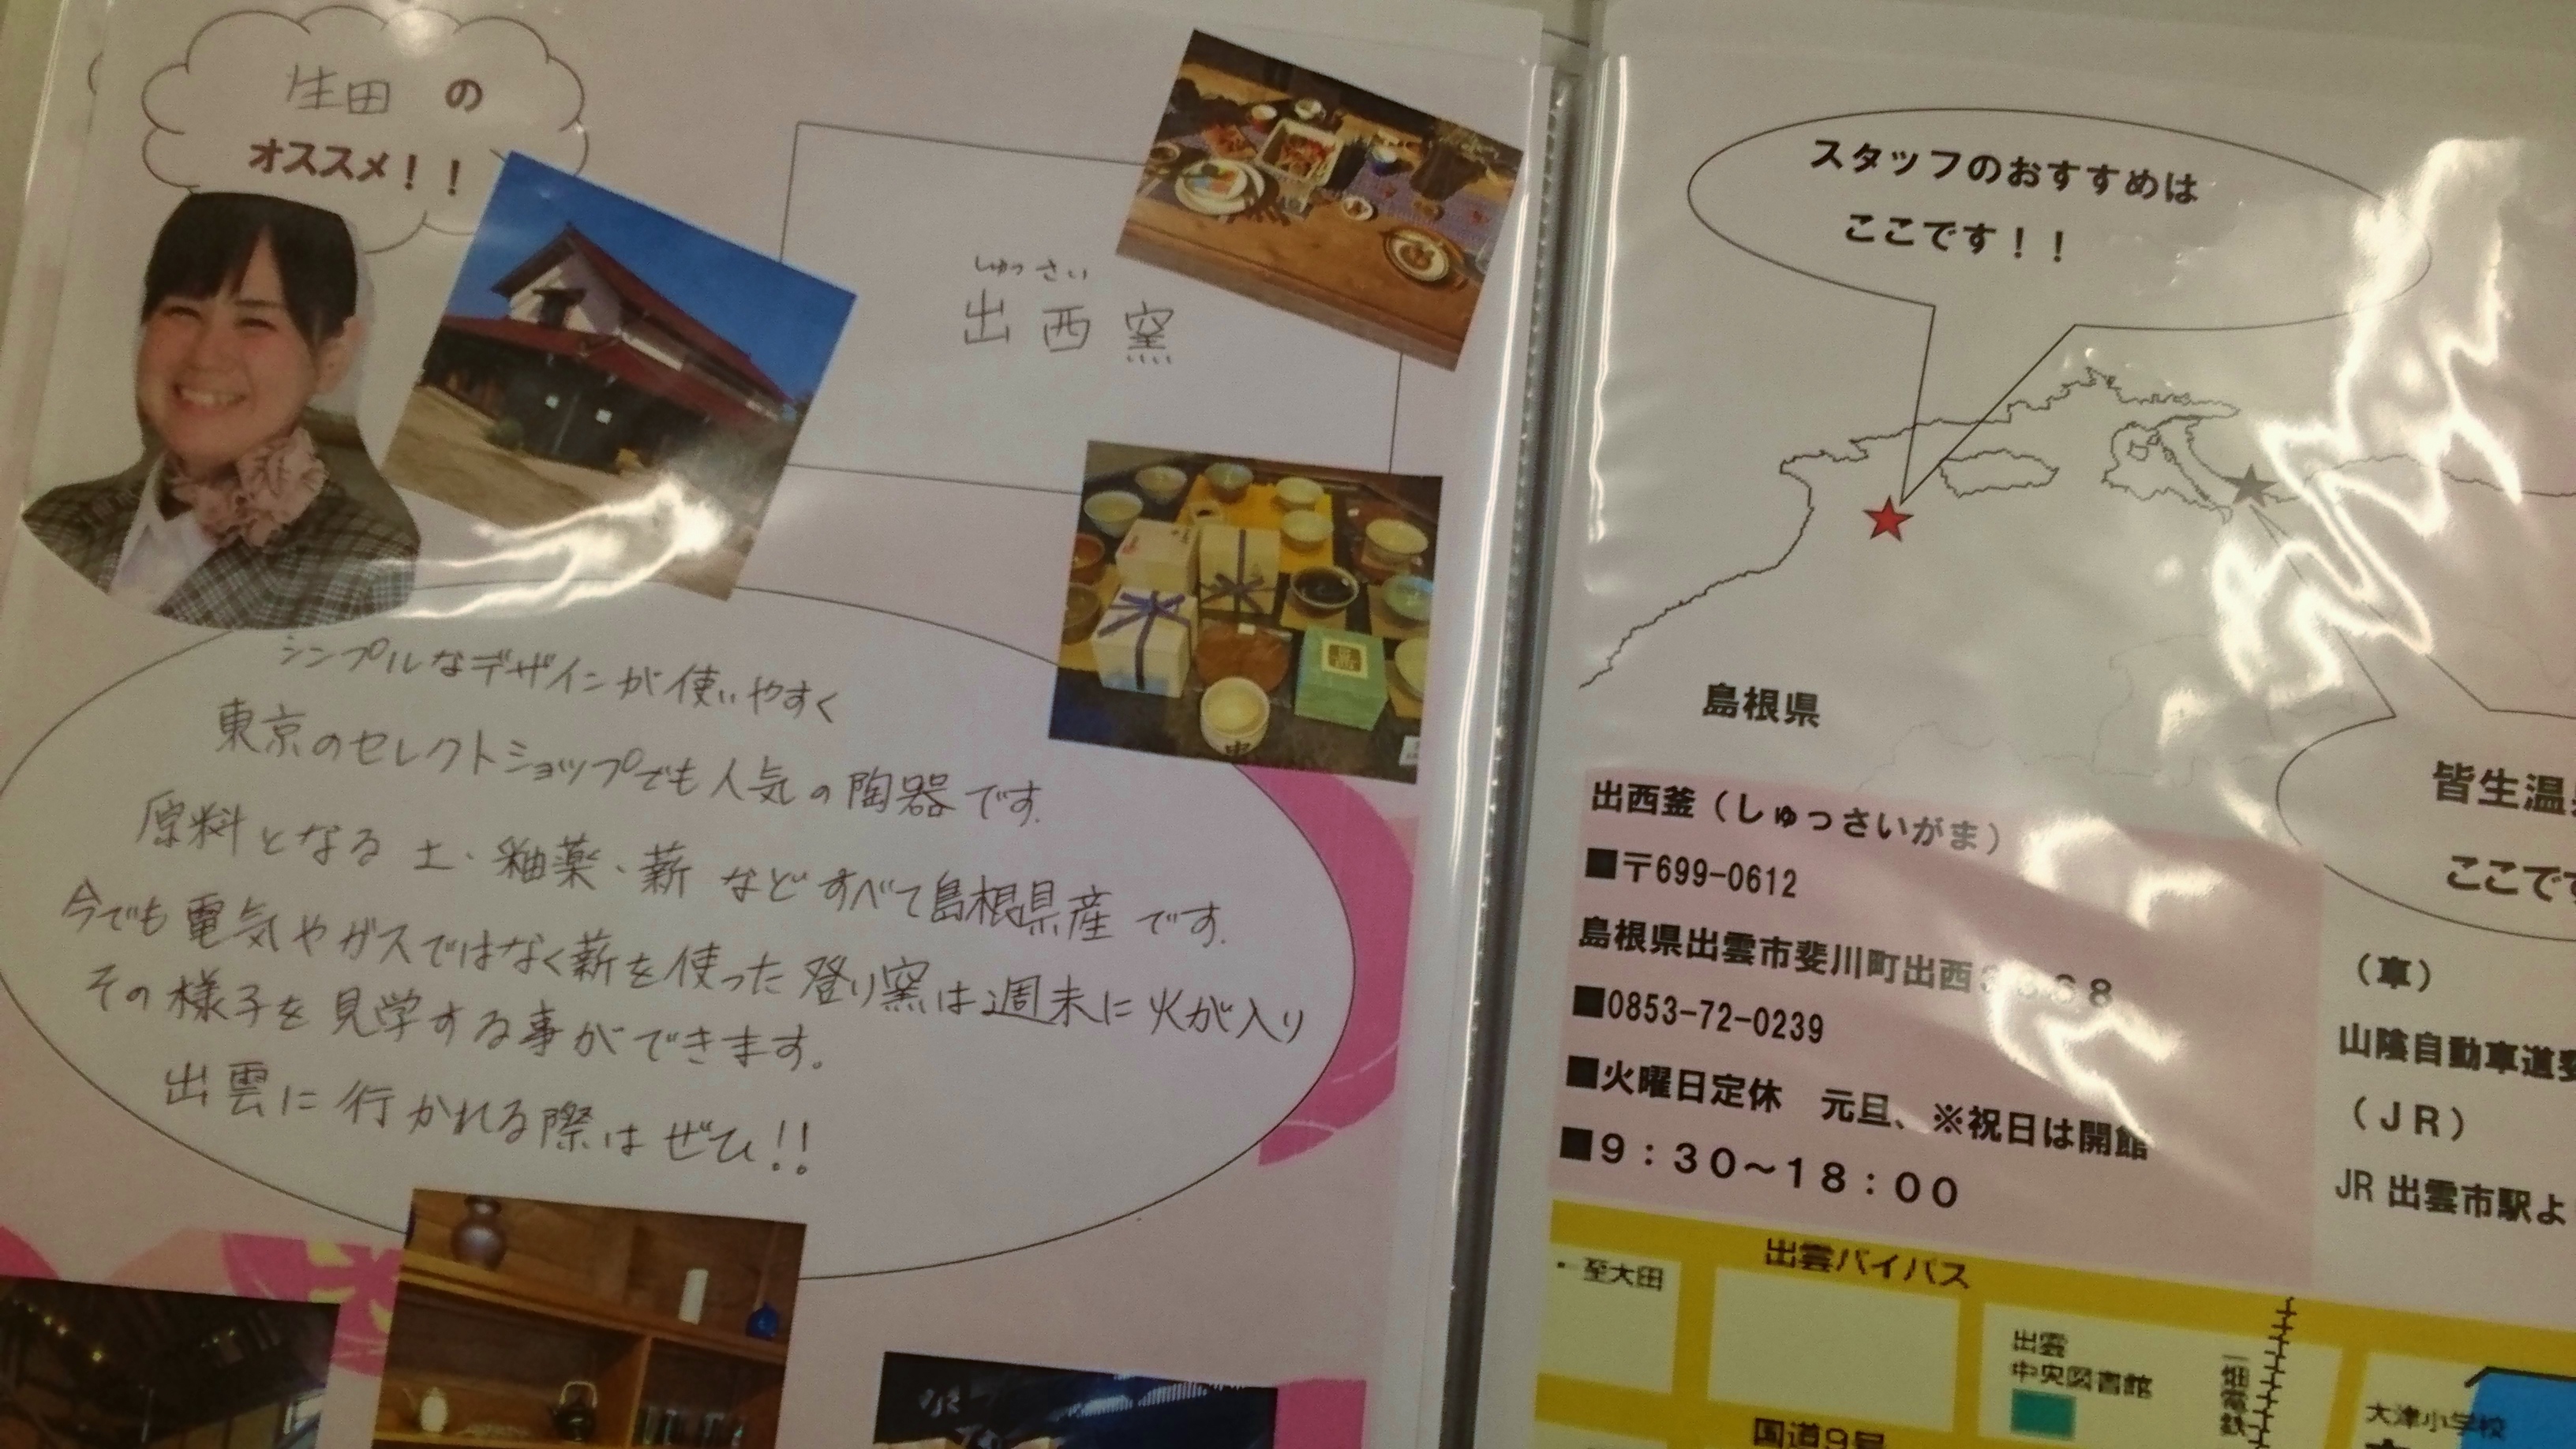 生田 の
オススメ！！
しゅっ さい
出西窯
シンプルなデザインが使いやすく
東京のセレクトショップでも人気の陶器です.
原料となる 土・釉薬・薪 などすべて島根県産です.
今でも電気やガスではなく薪を使った登り窯は週末に火が入り
その様子を見学する事ができます.
出雲に行かれる際はぜひ!!
スタッフのおすすめは
ここです！！
島根県
皆生温
ここで
出西釜（しゅっさいがま）
■〒699-0612
島根県出雲市斐川町出西
■0853-72-0239
■火曜日定休　元旦、※祝日は開館
■9：30～18：00
（車）
山陰自動車道
（ＪＲ）
JR 出雲市駅よ
出雲バイパス
至大田
出雲
中央図書館
一畑電鉄
大津小学校
国道9号